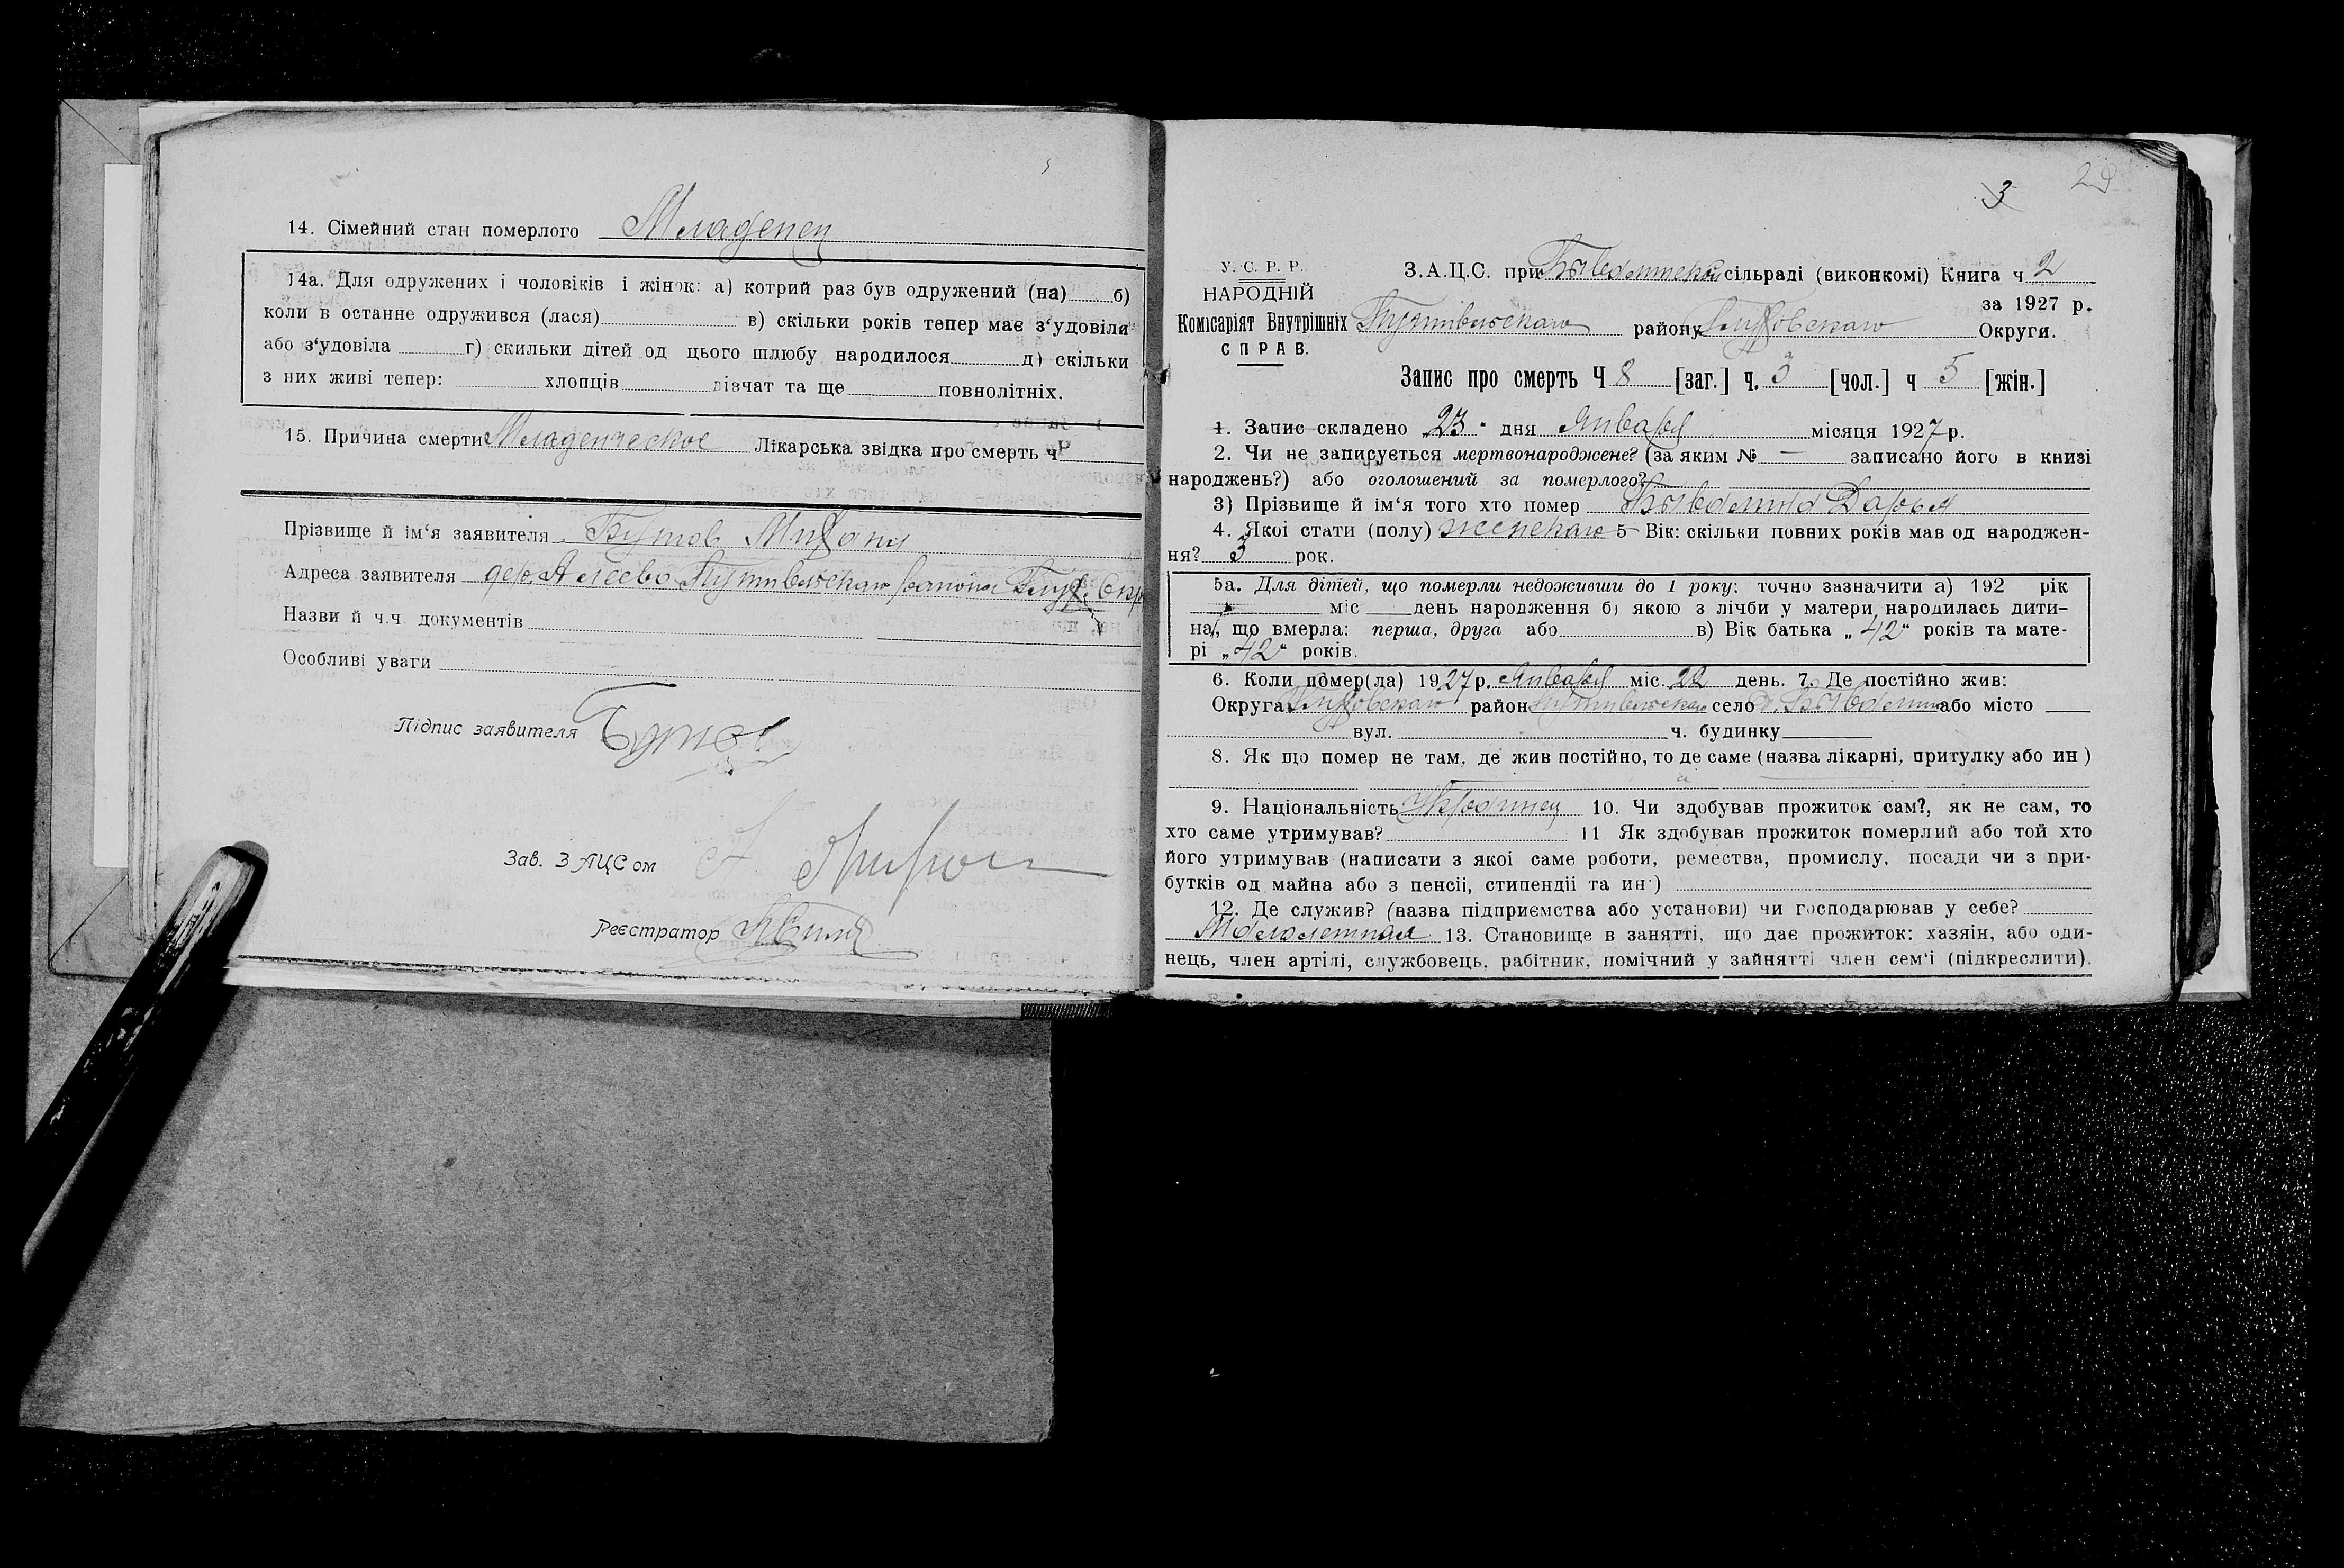 14. Сімейний стан померлого Младенец
14а. Для одружених і чоловіків і жінок: а) котрий раз був одружений (на) б)
коли в останне одружився (лася) в) скільки років тепер має з‘удовіли
або з‘удовіла г) скильки дітей од цього шлюбу народилося д) скільки
з них живі тепер: хлопців дівчат та ще повнолітніх.
15. Причина смерти Младенческое Лікарська звідка про смерть ч
Прізвище й ім‘я заявителя Бутов
Адреса заявителя дер. Путивльскаго района Глух. Окр
Назви й ч.ч документів
Особливі уваги
Підпис заявителя Бутов
Зав. ЗАЦСом
Реєстратор
3 
У. С. Р. Р.
НАРОДНІЙ
Комісаріят Внутрішніх
СПРАВ.
З.А.Ц.С. при сільраді (виконкомі) Книга ч 2
за 1927 р.
Путивльскаго району Глуховскаго Округи.
Запис про смерть Ч 8 [заг.] ч. 3 [чол.] ч 5 [жін.]
1. Запис складено „23“ дня Января місяця 1927 р.
2. Чи не записується мертвонароджене? (за яким № — записано його в книзі
народжень?) або оголошений за померлого?
3) Прізвище й ім‘я того хто помер Дарья
4. Якої стати (полу) женскаго 5— Вік: скільки повних років мав од народжен-
ня? 3 рок.
5а. Для дітей, що померли недоживши до 1 року: точно зазначити а) 192 рік
міс день народження б) якою з лічби у матери народилась дити-
на, що вмерла: перша, друга або в) Вік батька „42“ років та мате-
рі „42“ років.
6. Коли помер(ла) 1927 р. Января міс. 22 день. 7. Де постійно жив:
Округа Глуховскаго район Путивльскаго село або місто
вул. ч. будинку
8. Як що помер не там, де жив постійно, то де саме (назва лікарні, притулку або ин)
9. Національність Украинец 10. Чи здобував прожиток сам?, як не сам, то
хто саме утримував? 11 Як здобував прожиток померлий або той хто
його утримував (написати з якоі саме роботи, ремества, промислу, посади чи з при-
бутків од майна або з пенсіі, стипендіі та ин·)
12. Де служив? (назва підприємства або установи) чи господарював у себе?
Малолетная 13. Становище в занятті, що дає прожиток: хазяін, або оди-
нець, член артілі, службовець, рабітник, помічний у зайнятті член сем‘і (підкреслити).